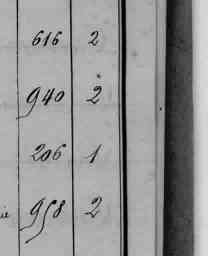 616 2
940 2
206 1
958 2